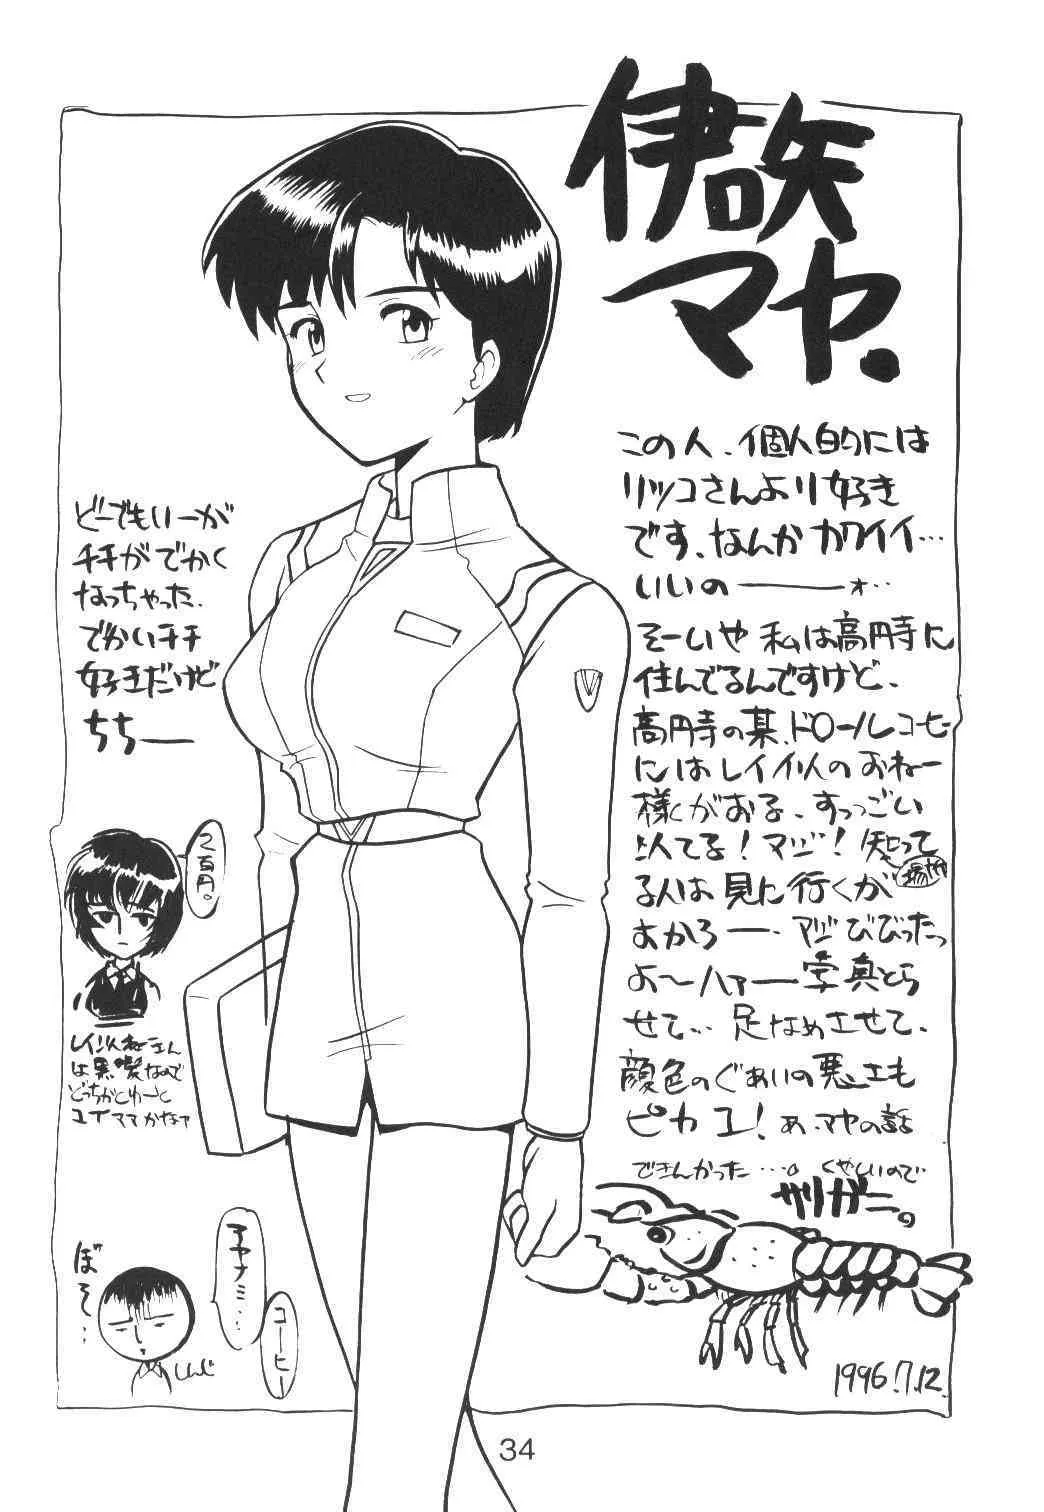 伊吹
マヤ.
この人、個人的には
リツコさんより好き
です、なんかカワイイ…
いいのーーォ…
そーいや私は高円寺に
住んでるんですけど、
高円寺の某、ドロールコヒ
にはレイ似のおねー
様がおる、すっごい
似てる!マジ!知って
場所
る人は見に行くが
よかろーー・マジびびったっ
よ〜ハァー写真とら
せて…足なめさせて、
顔色のぐあいの悪さも
ピカ一!あ、マヤの話
できんかった…。くやしいので
ザリガニ。
1996.7.12.
どーでもいーが
チチがでかく
なっちゃった.
でかいチチ
好きだけど
ちちー
2百円。
レイ似ねーさん
は黒髪なので
どっちかとゆーと
ユイママかなァ
ぼそ…
アヤナミ…
コーヒー
しんじ
34